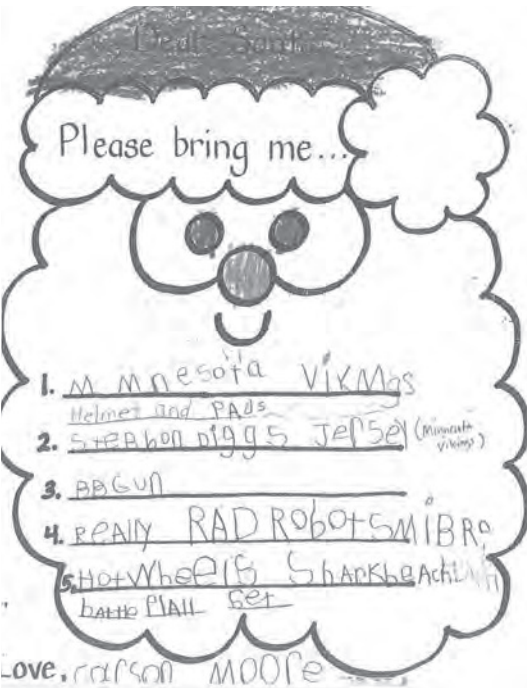 Dear Santa
Please bring me...
1. Minnesota Vikings
Helmet and PAds
2. StepHon Diggs Jersey (Minnesota Vikings)
3. BBGUn
4. ReAlly RAD RoBotS MiBRo
5. HotWheels SharkbeAch
bAttle PlAll Set
Love, carson Moore